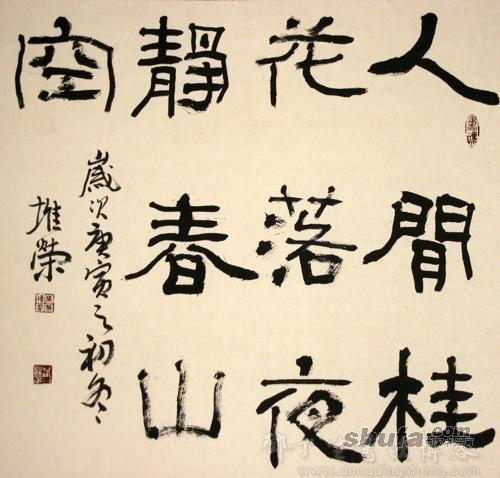 人閒桂
花落夜
靜春山
空
歲次庚寅之初冬
堆榮
shufa.com
www.dengdingsheng.com